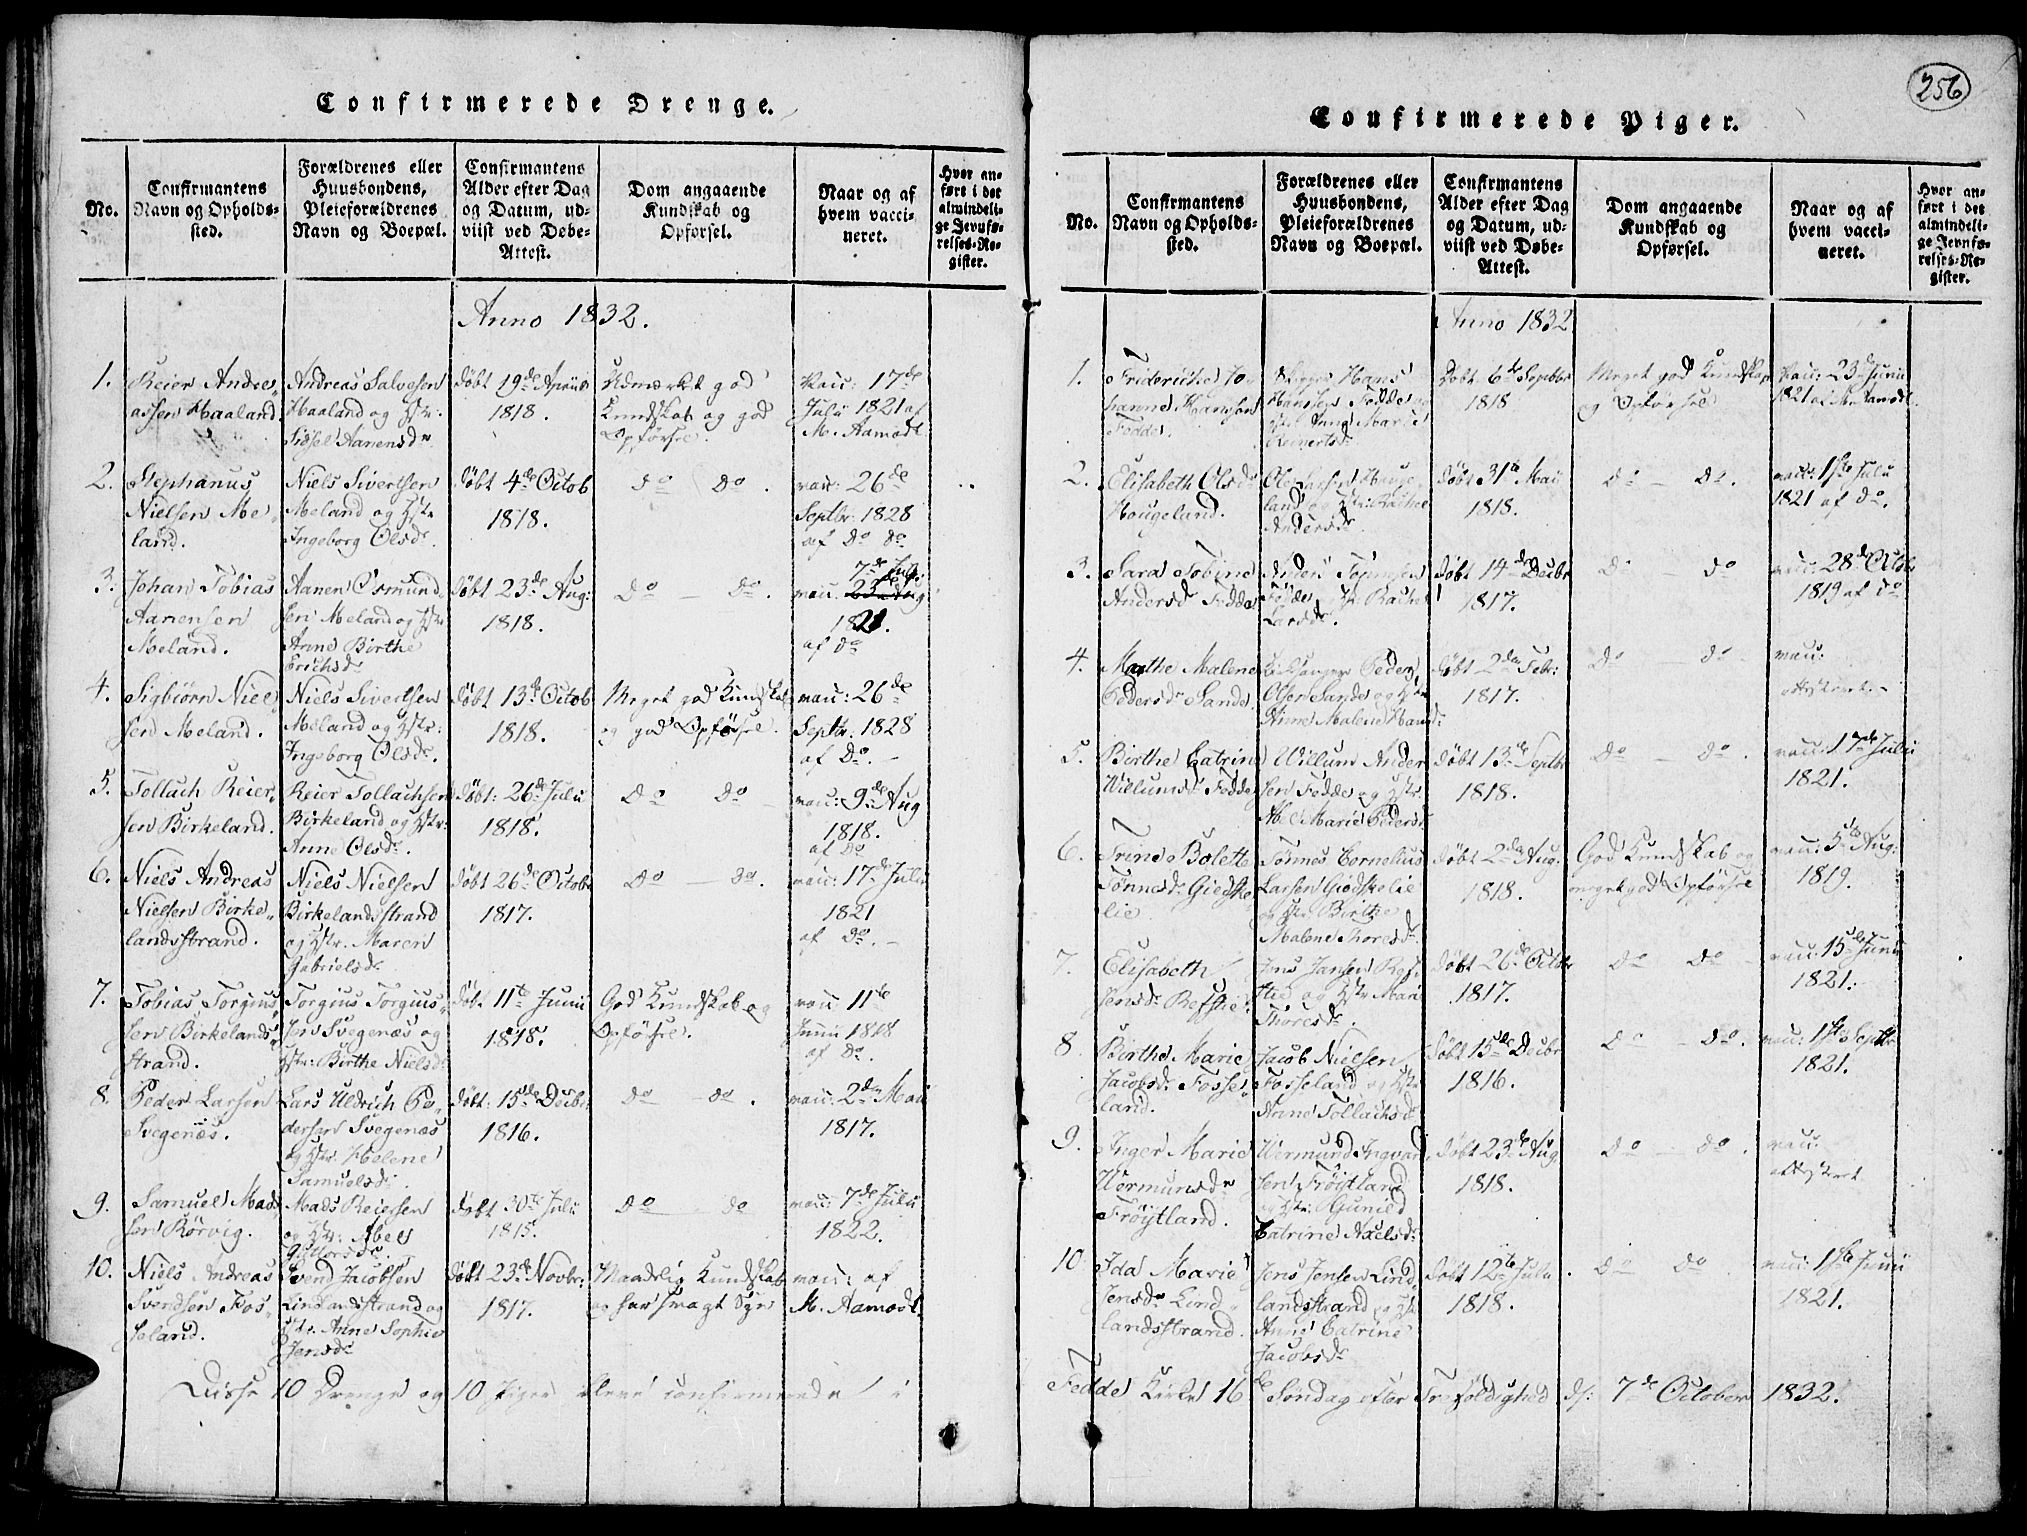 256
Confirmerede Drenge.
No.
Confirmantens
Navn og Opholds-
sted.
Forældrenes eller
Huusbondens,
Pleieforældrenes
Navn og Boepæl.
Confirmantens
Alder efter Dag
og Datum, ud-
viist ved Døbe-
Attest.
Dom angaaende
Kundskab og
Opførsel.
Naar og af
hvem vacci-
neret.
Hvor an-
ført i det
almindeli-
ge Jevnfø-
relses-Re-
gister.
Anno 1832.
1.
Reier Andre„
assen Haaland
Andreas Salvesen
Haaland og Hstr:
Sidsel Aanensdr
døbt 19de April
1818.
Udmærket god
Kundskab og god
Opførsel.
Vacc: 17de
Juli 1821 af
M. Aamodt
2.
Stephanus
Nielsen Me„
land.
Niels Sivertsen
Meland og Hstr
Ingeborg Olsdr.
døbt 4de Octob
1818.
do do.
vacc: 26de
Septbr: 1828
af do do
3.
Johan Tobias
Aanensen
Meland.
Aanen Osmund„
sen Meland og Hstr
Anne Birthe
Erichsdr
døbt 23de Aug:
1818.
do — do.
7de Juli
vacc. 23de Aug
1821.
af do
4.
Sigbiørn Niel„
sen Meland.
Niels Sivertsen
Meland og Hstr:
Ingeborg Olsdr.
døbt 13de Octob
1818.
Meget god Kundskab
og god Opførsel.
vacc: 26de
Septbr: 1828
af do. –
5.
Tollach Reier„
sen Birkeland.
Reier Tollachsen
Birkeland og Hstr:
Anne Olsdr.
døbt: 26de Juli
1818.
do do –
vacc: 9de Aug
1818.
af do
6.
Niels Andreas
Nielsen Birke„
landsstrand.
Niels Nielsen
Birkelandsstrand
og Hstr. Maren
Gabrielsdr
døbt 26de Octobr
1817.
do — do.
vacc: 17de Juli
1821
af do. –
7.
Tobias Torgius„
sen Birkelands„
strand.
Torgius Torgius„
sen Svegenæs og
Hstr: Birthe Nielsdr
døbt 11te Junii
1818.
God Kundskab og
Opførsel.
vacc 11te
Junii 1818
af do.
8.
Peder Larsen
Svegenæs.
Lars Uldrich Pe„
dersen Svegenæs
og Hstr. Helene
Samuelsdr.
døbt: 15de Decbr.
1816.
do – do.
vacc: 2den Mai
1817.
9.
Samuel Mad„
sen Rørvig.
Mads Reiersen
og Hstr: Abel
Guttorsdr.
døbt 30te Juli
1815.
do – do
vacc: 7de Juli
1822.
10.
Niels Andreas
Svendsen Fos„
seland.
Svend Jacobsen
Lindlandsstrand og
Hstr. Anne Sophie
Jensdr
døbt 23de Novbr:
1817.
Maadelig Kundskab
og har svagt Syn
vacc: af
M. Aamodt.
Disse 10 Drenge og 10 Piger bleve confirmerede i
Confirmerede Piger.
No.
Confirmantens
Navn og Opholds-
sted.
Forældrenes eller
Huusbondens,
Pleieforældrenes
Navn og Boepæl.
Confirmantens
Alder efter Dag
og Datum, ud-
viist ved Døbe-
Attest.
Dom angaaende
Kundskab og
Opførsel.
Naar og af
hvem vacci-
neret.
Hvor an-
ført i det
almindeli-
ge Jevnfø-
relses-Re-
gister.
Anno 1832
1.
Friderikke Jo„
hanne Hansen
Fedde.
Hans
Hanssen Fedde og
Hstr Anne Marie
Reinertsdr
Døbt 6te Septbr
1818
Meget god Kundskab
og Opførsel
Vacc: 23de Junii
1821 af M. Aamodt.
2.
Elisabeth Olsdr
Hougeland.
Ole Larsen Houge„
land og Hstr. Rachel
Andersdr
døbt 31te Mai
1818.
do – do.
vacc: 1ste Juli
1821 af do.
3.
Sara Tobine
Andersdr Fedde
Anders Tønnesen
Fedde – Hstr Rachel
Larsdr.
døbt 14de Decbr
1817.
do – do
vacc: 28de Octbr
1819 af do
4.
Marthe Malene
Pedersdr Sande.
Kirkesanger Peder
Olsen Sande og Hstr
Anne Malene Hansdr.
døbt 2den Febr:
1817.
do do –
vacc.
attesteret. –
5.
Birthe Catrine
Willumsdr Fedde
Willum Ander
sen Fedde og Hstr.
Abel Marie Pedersdr
døbt 13de Septbr
1818.
do – do.
vacc: 17de Juli
1821.
6.
Trine Bolette
Tønnesdr Giedske„
lie.
Tønnes Cornelius
Larsen Giedskelie
og Hstr Birthe
Malene Thoresdr.
døbt 2den Aug.
1818.
God Kundskab og
meget god Opførsel
vacc: 5te Aug:
1819.
7.
Elisabeth
Jensdr Refstie.
Jens Jansen Ref„
stie og Hstr Mari
Thoresdr.
døbt 26de Octobr
1817.
do do –
vacc: 15de Junii
1821.
8.
Birthe Marie
Jacobsdr Fosse„
land.
Jacob Nielsen
Fosseland og Hstr
Anne Tollachsdr
døbt 15de Decbr
1816.
do – do.
vacc: 1ste Septbr
1821.
9.
Inger Marie
Wermunsdr
Frøytland.
Wermund Ingvald„
sen Frøytland
og Hstr: Gunild
Catrine Axelsdr:
døbt 23de Aug
1818.
do – do.
vacc:
attesteret
10.
Ida Marie
Jensdr Lind„
landsstrand.
Jens Jensen Lind„
landsstrand og Hstr
Anne Catrine
Jacobsdr
døbt 12te Juli
1818.
do do
vacc: 1ste Junii
1821.
Fedde Kirke 16de Søndag efter Trefoldighed ds: 7de October 1832.